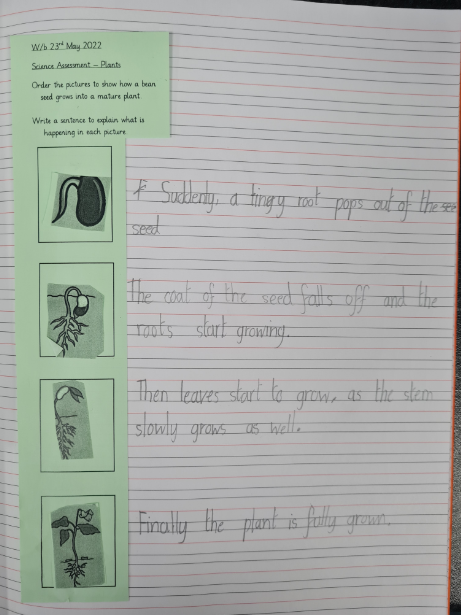 W/b 23rd May 2022
Science Assessment – Plants
Order the pictures to show how a bean
seed grows into a mature plant.
Write a sentence to explain what is
happening in each picture.
Suddenly, a tingy root pops out of the
seed
The coat of the seed falls off and the
roots start growing.
Then leaves start to grow, as the stem
slowly grows as well.
Finally the plant is fully grown.